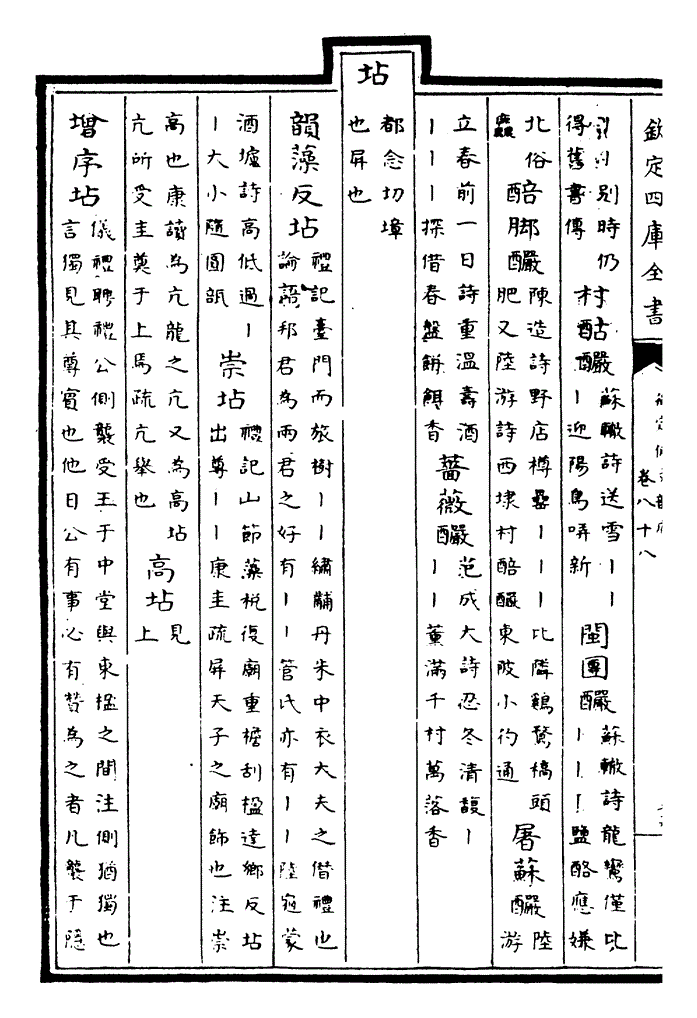 欽定四庫全書
卷八十八
別時仍
得舊書傳
村酤釅
蘇轍詩送雪｜｜
｜迎陽鳥哢新
閩團釅
蘇轍詩龍鸞僅比
｜｜｜鹽酪應嫌
北俗
麤
醅脚釅
陳造詩野店樽罍｜｜｜比隣鷄鶩橋頭
肥又陸游詩西埭村醅釅東陂小彴通
屠蘇釅
陸
游
立春前一日詩重溫壽酒
｜｜｜探借春盤餅餌香
薔薇釅
范成大詩忍冬清馥｜
｜｜薰滿千村萬落香
坫
都念切墇
也屏也
韻藻反坫
禮記臺門而旅樹｜｜繡黼丹朱中衣大夫之僣禮也
論語邦君為兩君之好有｜｜管氏亦有｜｜陸龜蒙
酒壚詩高低過｜
｜大小隨圓瓻
崇坫
禮記山節藻梲復廟重檐刮楹達鄉反坫
出尊｜｜康圭疏屏天子之廟飾也注崇
高也康讀為亢龍之亢又為高坫
亢所受圭奠于上焉疏亢舉也
高坫
見
上
增序坫
儀禮聘禮公側襲受玉于中堂與東楹之間注側猶獨也
言獨見其尊賓也他日公有事必有賛為之者凡襲于隱